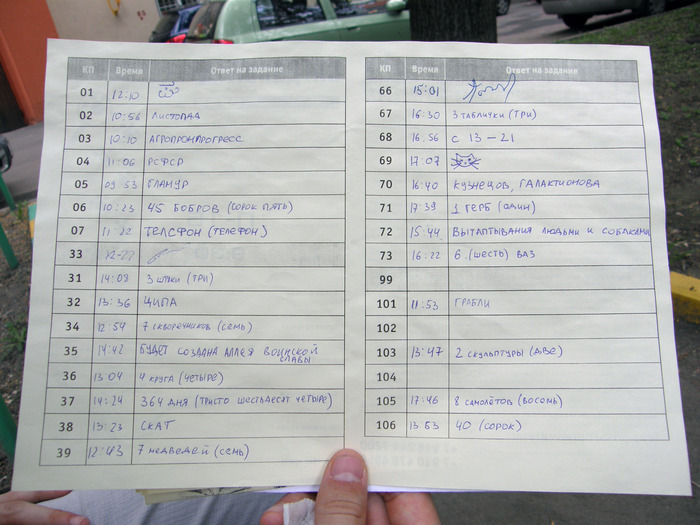 КП Время Ответ на задание
01 12:10
02 10:56 ЛИСТОПАД
03 10:10 АГРОПРОМПРОГРЕСС
04 11:06 РСФСР
05 09:53 ГЛАМУР
06 10:23 45 БОБРОВ (СОРОК ПЯТЬ)
07 11:22 ТЕЛСФОН (ТЕЛЕФОН)
33 12-22
31 14:09 3 штуки (ТРИ)
32 13:36 ЦИПА
34 12:54 7 скворечников (семь)
35 14:42 БУДЕТ СОЗДАНА АЛЛЕЯ ВОИНСКОЙ
СЛАВЫ
36 13:04 4 круга (четыре)
37 14:24 364 ДНЯ (ТРИСТО ШЕСТЬДЕСЯТ ЧЕТЫРЕ)
38 13:23 СКАТ
39 12:43 7 медведей (семь)
КП Время Ответ на задание
66 15:01
67 16:30 3 ТАБЛИЧКИ (ТРИ)
68 16.56 С 13-21
69 17:07
70 16:40 КУЗНЕЦОВ, ГАЛАКТИОНОВА
71 17:39 1 ГЕРБ (один)
72 15:44 ВЫТАПТЫВАНИЯ людьми и СОБАКАМИ
73 16:22 6 (шесть) ВАЗ
99
101 11:53 ГРАБЛИ
102
103 13:47 2 скульптуры (две)
104
105 17:46 8 самолётов (восемь)
106 13:53 40 (сорок)